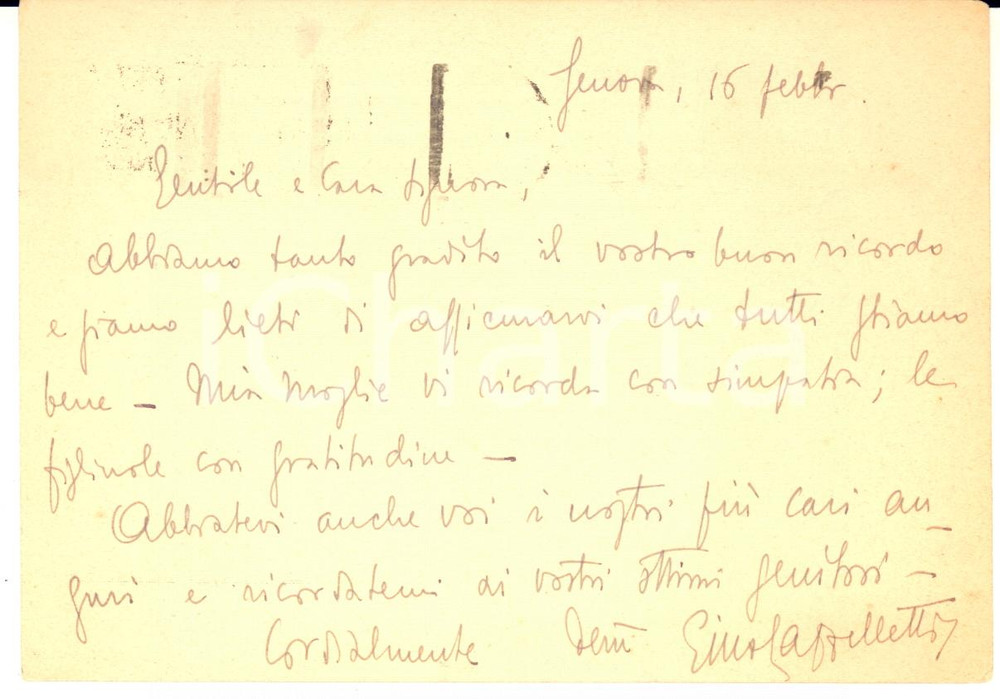 Genova, 16 febbr.
Gentile e Cara Signora,
Abbiamo tanto gradito il vostro buon ricordo
e siamo lieti di assicurarvi che tutti stiamo
bene – Mia Moglie vi ricorda con simpatia; le
figliuole con gratitudine –
Abbiatevi anche voi i nostri più cari au-
guri e ricordatemi ai vostri ottimi genitori –
Cordialmente Gino Cappelletti
iCharta